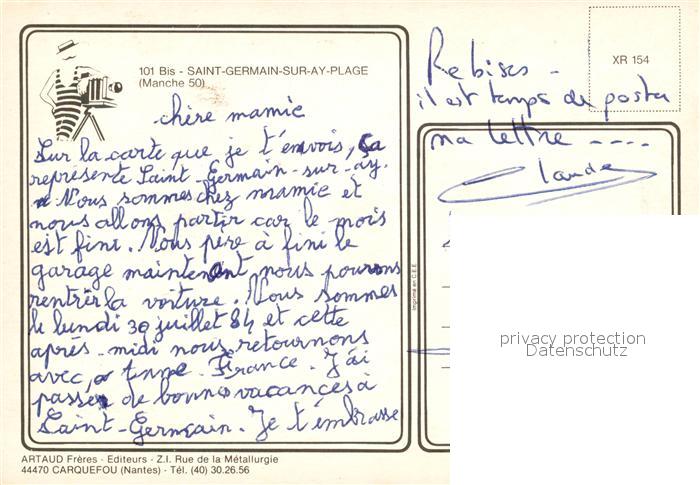 101 Bis - SAINT-GERMAIN-SUR-AY-PLAGE
(Manche 50)
chère mamie
Sur la carte que je t'envois, ça
représente Saint-Germain-sur-ay.
Nous sommes chez mamie et
nous allons partir car le mois
est fini. Nous père à fini le
garage maintenant nous pourrons
rentrir la voiture. Nous sommes
le lundi 30 juillet 84 et cette
après-midi nous retournons
avec, a Anne-France. J'ai
passer de bonnes vacances à
Saint-Germain. Je t'embrasse
ARTAUD Frères - Editeurs - Z.I. Rue de la Métallurgie
44470 CARQUEFOU (Nantes) - Tél. (40) 30.26.56
Imprimé en C.E.E.
XR 154
Rebises -
il est temps de poster
ma lettre ----
Claude
privacy protection
Datenschutz